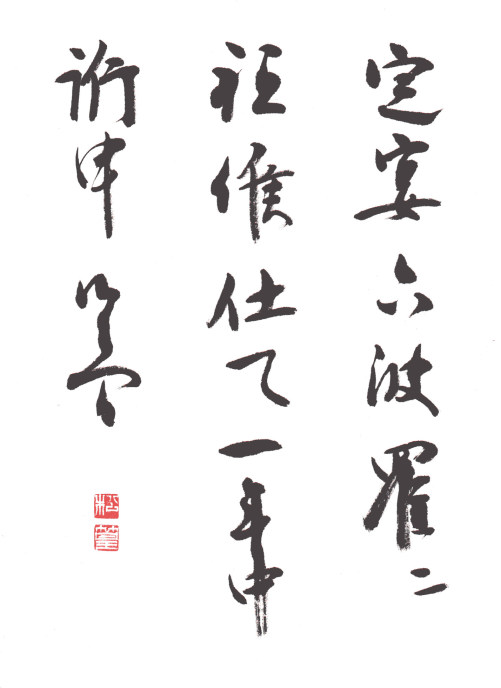 定宴六波羅ニ
祗候仕て一年中
訴申